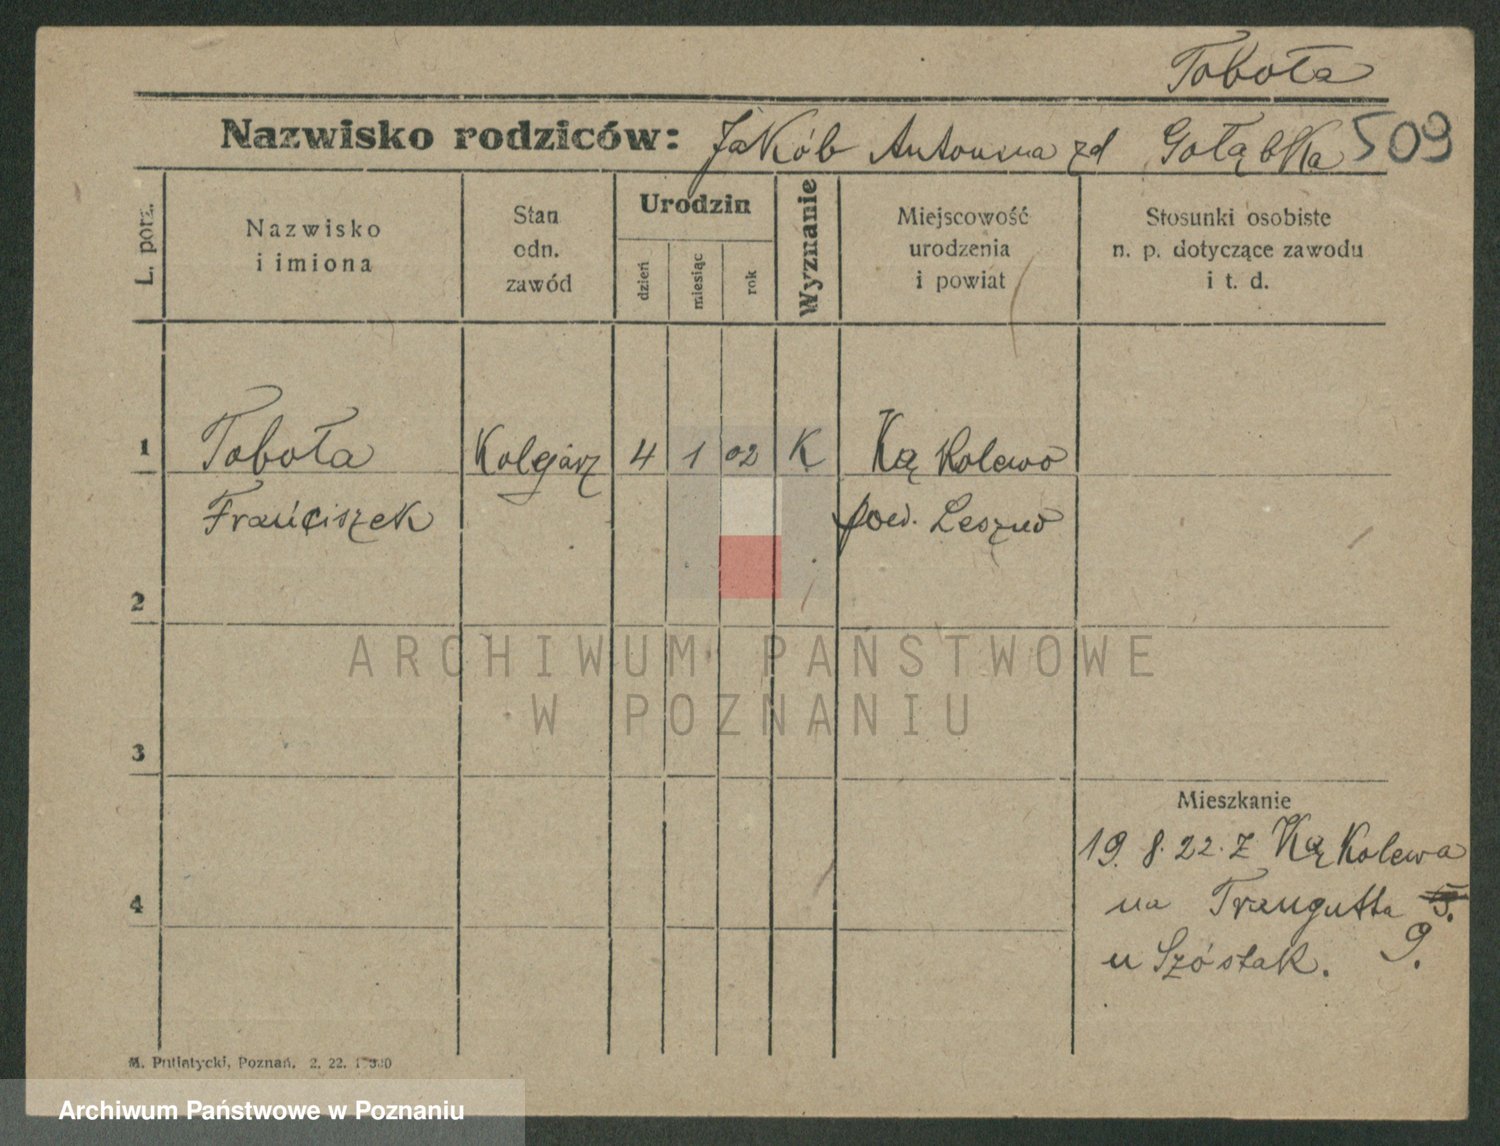 Toboła
Nazwisko rodziców: Jakób Antonina zd Gołąbka 509
L. porz.
Nazwisko
i imiona
Stan
odn.
zawód
Urodzin
dzień
miesiąc
rok
Wyznanie
Miejscowość
urodzenia
i powiat
Stosunki osobiste
n. p. dotyczące zawodu
i t. d.
1 Toboła Kolejarz 4 1 02 K Ką Kolewo
Franciszek pow. Leszno
2
ARCHIWUM PAŃSTWOWE
W POZNANIU
3
Mieszkanie
19. 8. 22. Z Ką Kolewa
na Traugutta 5.
9.
u Szóstak.
4
M. Putiatycki, Poznań. 2. 22.
Archiwum Państwowe w Poznaniu